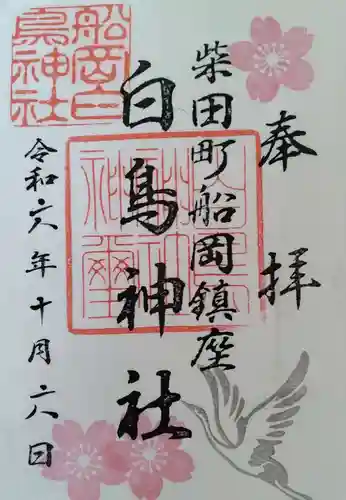 奉拝
柴田町船岡鎮座
白鳥神社
令和六年十月六日
船岡白鳥神社